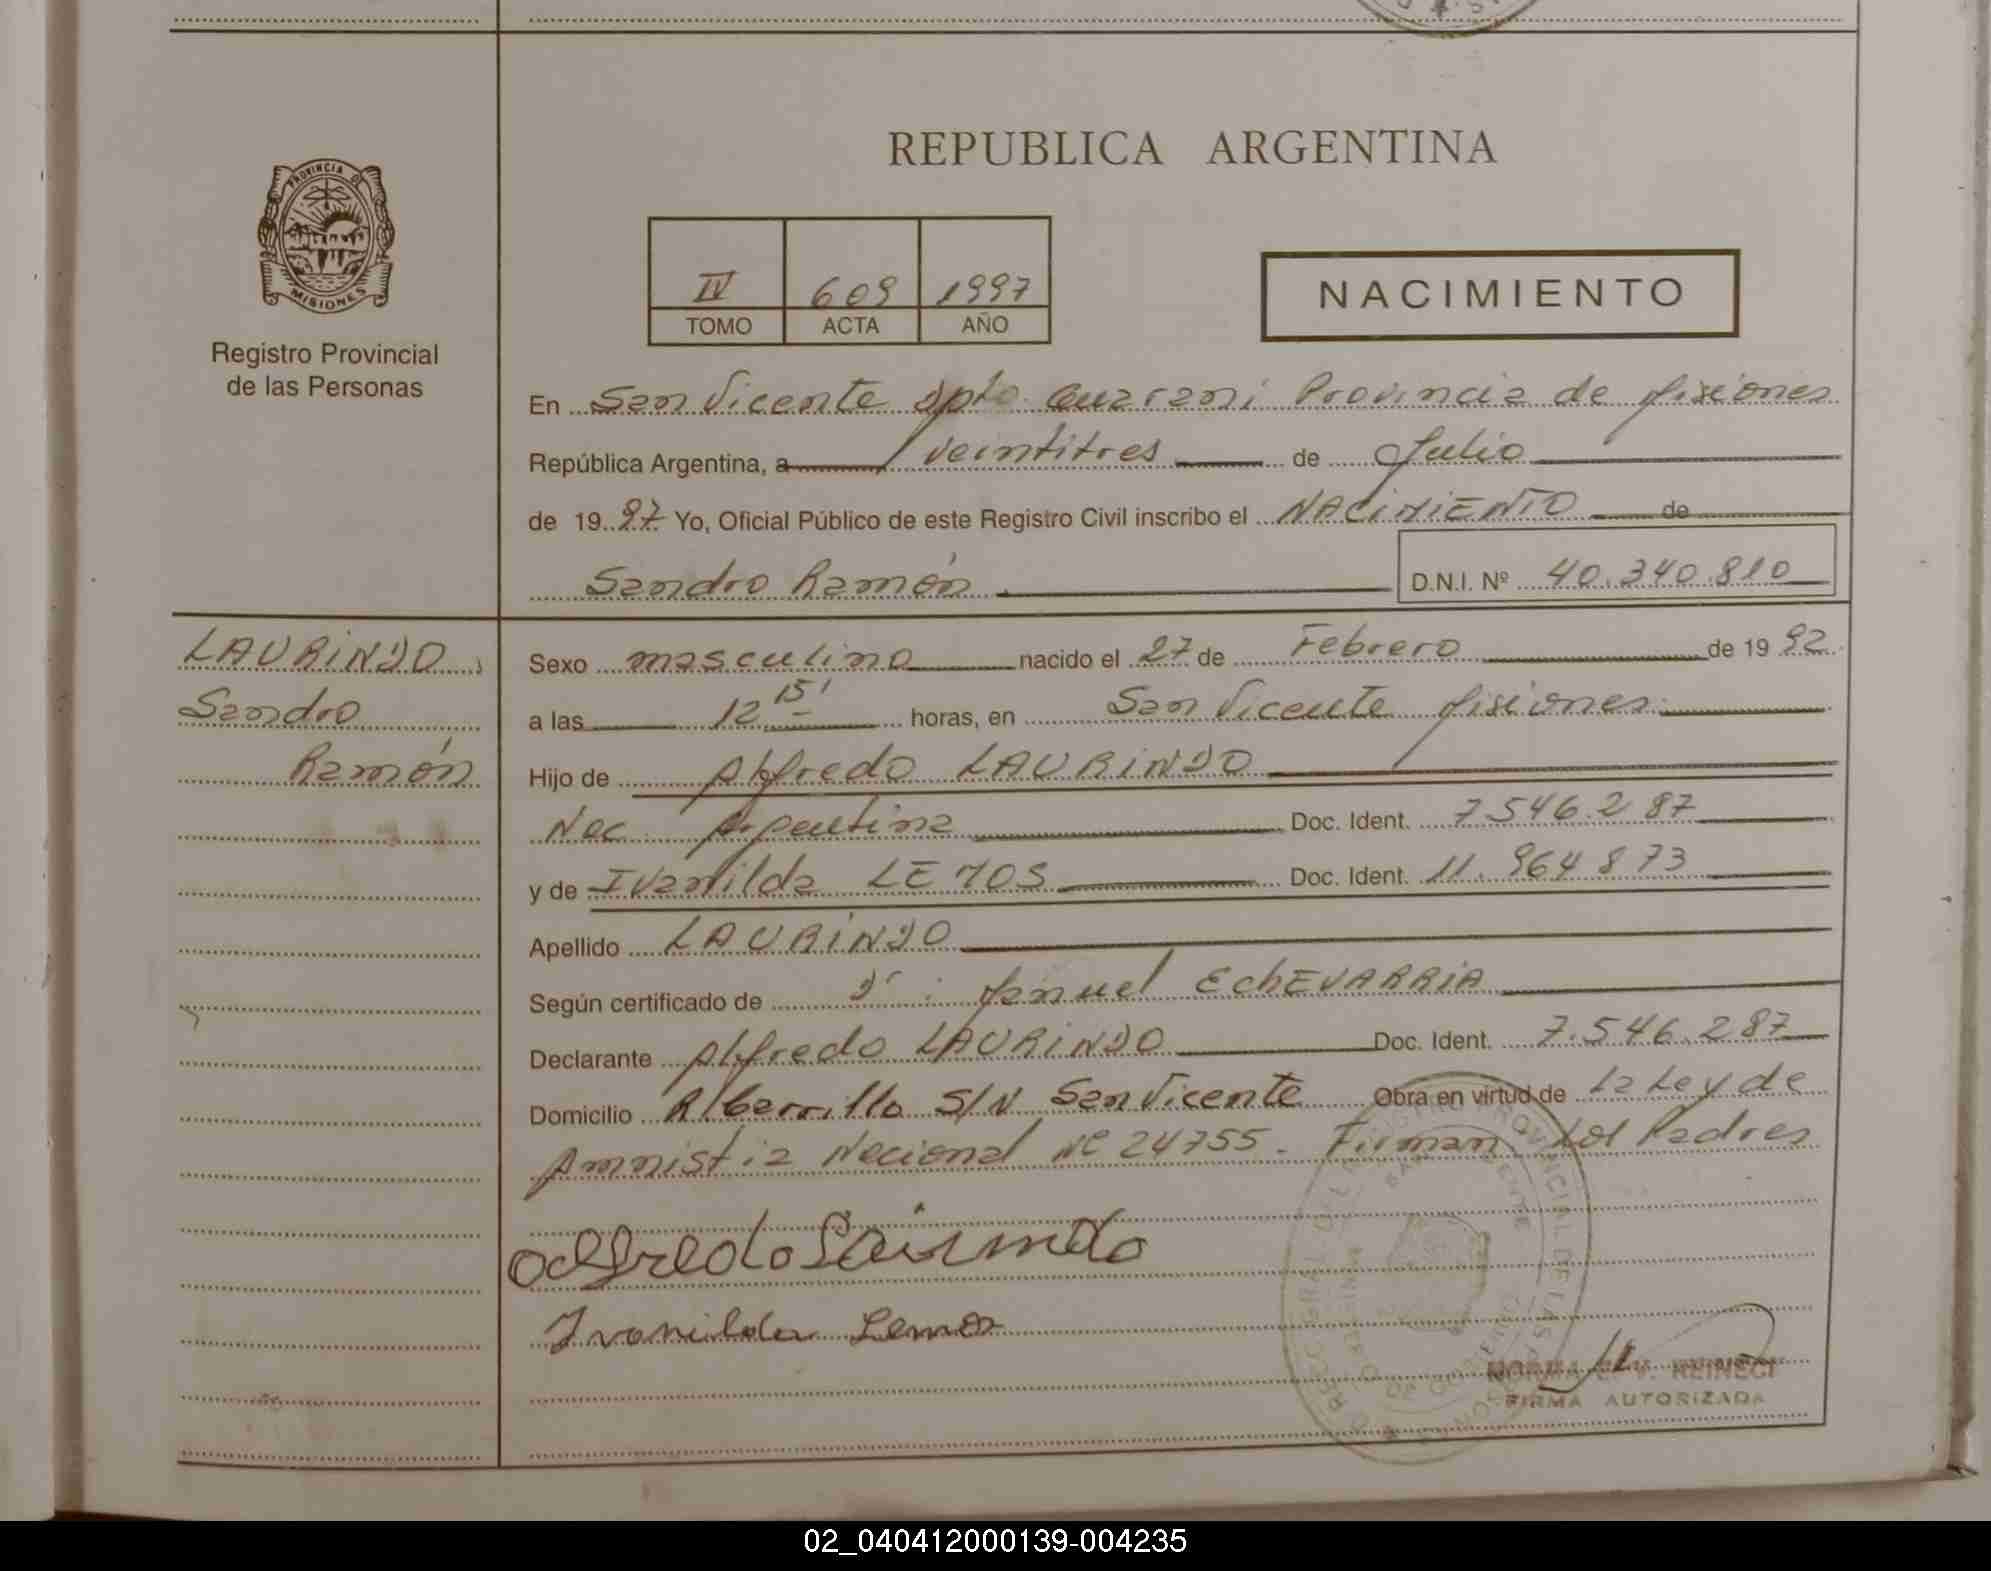 REPUBLICA ARGENTINA
PROVINCIA DE
MISIONES
Registro Provincial
de las Personas
IV 609 1997
TOMO ACTA AÑO
NACIMIENTO
En San Vicente Dpto. Guarani Provincia de Misiones
República Argentina, a veintitres de Julio
de 1997 Yo, Oficial Público de este Registro Civil inscribo el NACIMIENTO de
Sandro Ramón D.N.I. Nº 40.340.810
LAURINDO,
Sandro
Ramón
Sexo masculino nacido el 27 de Febrero de 1992
a las 12 15' horas, en San Vicente Misiones
Hijo de Alfredo LAURINDO
Nac. Argentina Doc. Ident. 7.546.287
y de Ivanilda LEMOS Doc. Ident. 11.964.873
Apellido LAURINDO
Según certificado de Dr: Manuel EchEVARRIA
Declarante Alfredo LAURINDO Doc. Ident. 7.546.287
Domicilio Albarrillo S/N San Vicente Obra en virtud de la Ley de
Amnistia Nacional Nº 24755. Firman los Padres
Alfredo Laurindo
Ivanilda Lemos
NORMA V. REINECI
FIRMA AUTORIZADA
02_040412000139-004235